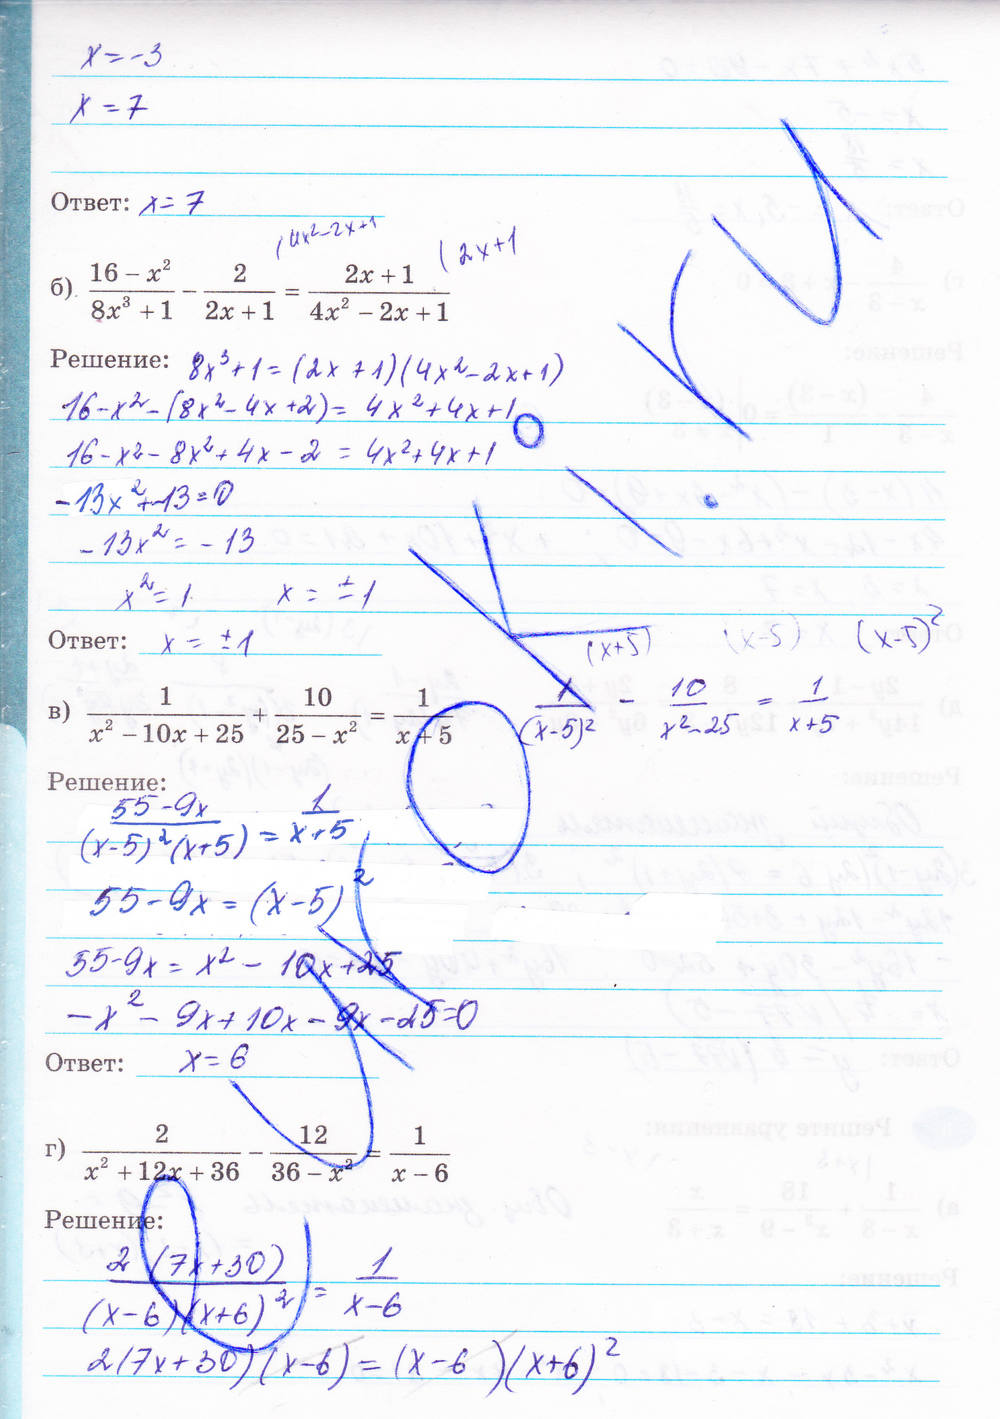 x = -3
x = 7
Ответ: x = 7
(4x² - 2x + 1
(2x + 1
б) (16 − x²)/(8x³ + 1) − 2/(2x + 1) = (2x + 1)/(4x² − 2x + 1)
Решение: 8x³ + 1 = (2x + 1)(4x² - 2x + 1)
16 - x² - (8x² - 4x + 2) = 4x² + 4x + 1
16 - x² - 8x² + 4x - 2 = 4x² + 4x + 1
-13x² + 13 = 0
-13x² = -13
x² = 1 x = ±1
Ответ: x = ±1
(x+5) (x-5) (x-5)²
в) 1/(x² − 10x + 25) + 10/(25 − x²) = 1/(x + 5) 1/(x-5)² - 10/(x²-25) = 1/(x+5)
Решение:
(55 - 9x)/((x-5)²(x+5)) = 1/(x+5)
55 - 9x = (x-5)²
55 - 9x = x² - 10x + 25
-x² - 9x + 10x - 9x - 25 = 0
Ответ: x = 6
г) 2/(x² + 12x + 36) − 12/(36 − x²) = 1/(x − 6)
Решение:
2(7x+30)/((x-6)(x+6)²) = 1/(x-6)
2(7x+30)(x-6) = (x-6)(x+6)²
yrokik.ru